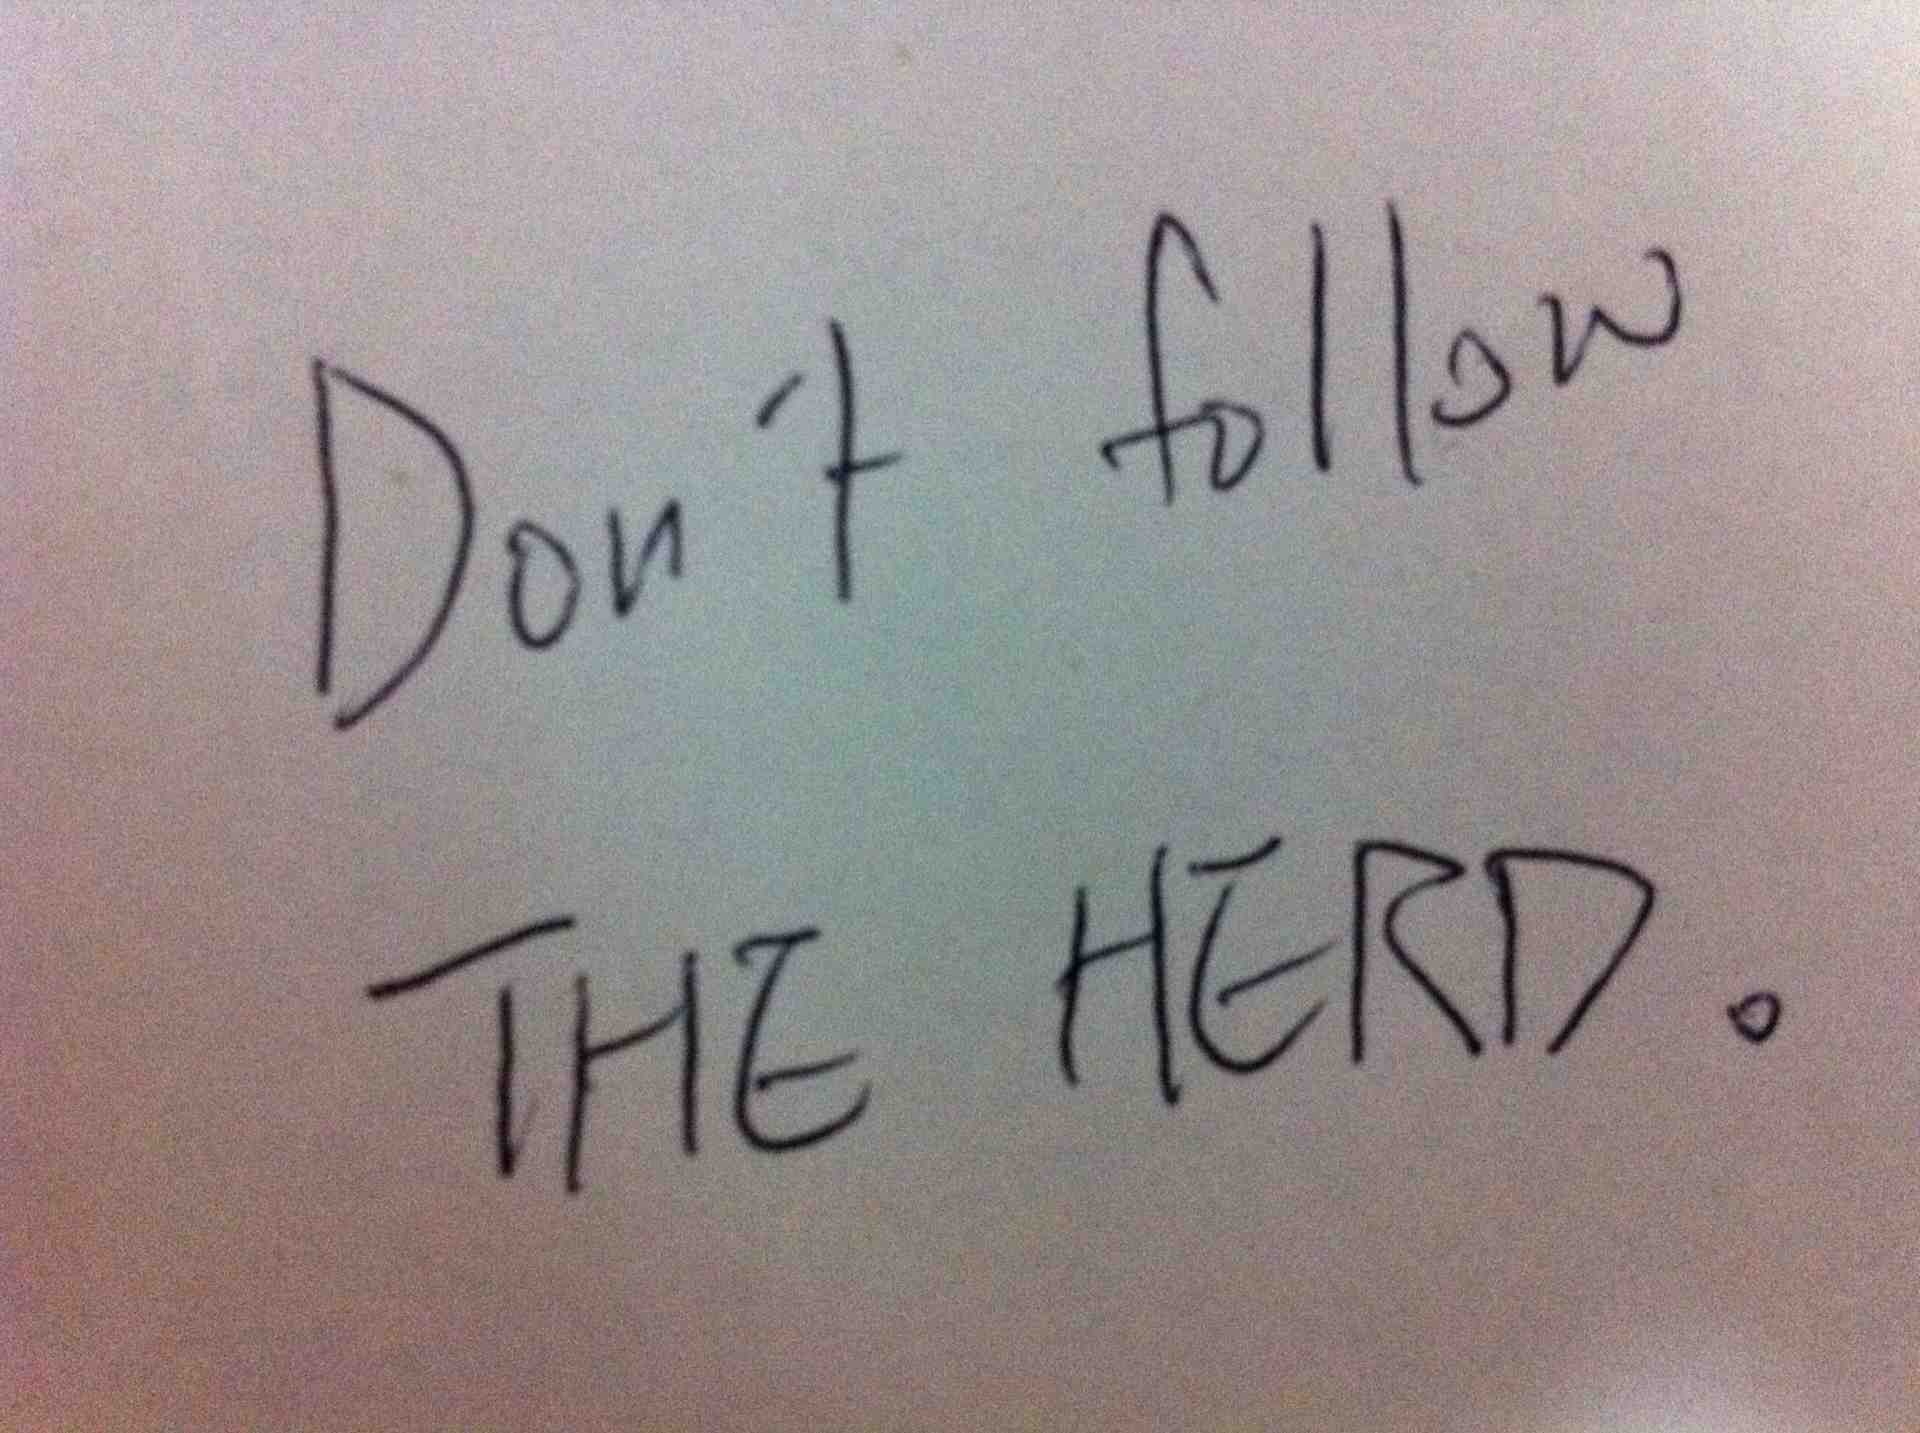 Don't follow
THE HERD.